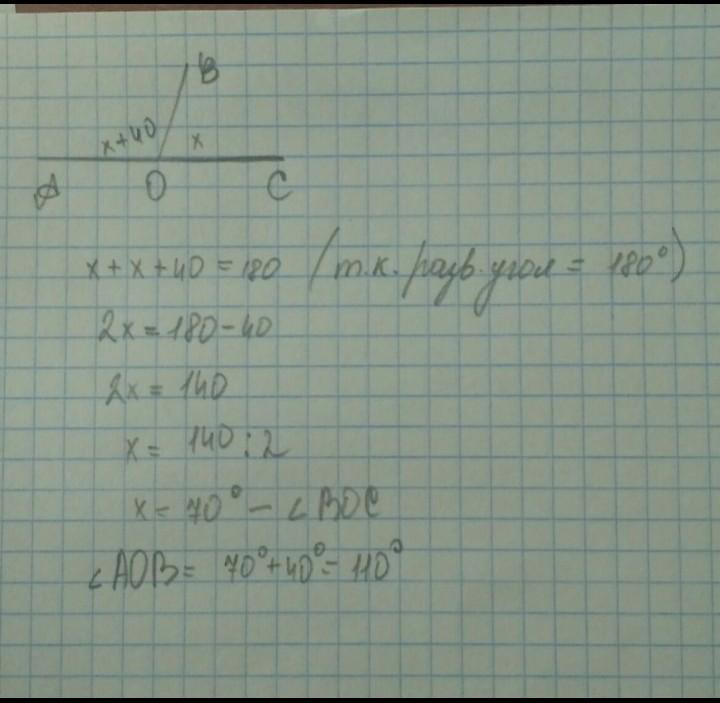 B
x+40 x
A O C
x + x + 40 = 180 (т.к. разв. угол = 180°)
2x = 180 - 40
2x = 140
x = 140 : 2
x = 70° - ∠BOC
∠AOB = 70° + 40° = 110°